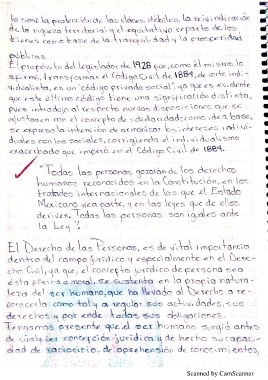 lo son la protección de las clases débiles, la reivindicación
de la riqueza territorial y el equitativo reparto de los
bienes como base de la tranquilidad y la prosperidad
públicas.
El propósito del legislador de 1928 que, como el mismo lo
afirmó, transformar el Código Civil de 1884, de corte indi-
vidualista, en un código privado social, ya que es evidente
que este último código tiene una significación distinta,
pues introdujo al respecto nuevas disposiciones que se
ajustasen con el concepto de solidaridad; como idea base,
se expuso la intención de armonizar los intereses indivi-
duales con los sociales, corrigiendo el individualismo
exacerbado que imperó en el Código Civil de 1884.
"Todas las personas gozarán de los derechos
humanos reconocidos en la Constitución, en los
tratados internacionales de los que el Estado
Mexicano sea parte, y en las leyes que de ellos
deriven. Todas las personas son iguales ante
la Ley".
El Derecho de las Personas, es de vital importancia
dentro del campo jurídico y especialmente en el Dere-
cho Civil, ya que, el concepto jurídico de persona sea
ésta física o moral, se sustenta en la propia natura-
leza del ser humano, que ha llevado al Derecho a re-
conocerla como tal y a regular sus actividades, sus
derechos y por ende todas sus obligaciones.
Tengamos presente que el ser humano surgió antes
de cualquier concepción jurídica y de hecho su capaci-
dad de raciocinio, de aprehensión de conocimientos,
Scanned by CamScanner